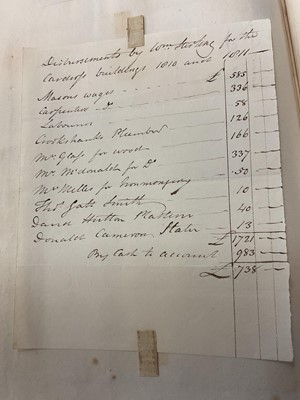 Disbursements by Wm Stirling for the
Cardross buildings 1810 and 1811
Masons wages £ 585
Carpenter Do 336
Labourers 58
Crookshanks Plumber 126
Mr Glass for wood 166
Mr McDonald for Do 337
Mr Mellis for Ironmongery 50
Thos Gats Smith 10
David Hutton Plasterer 40
Donald Cameron Slater 13
£ 1721
By Cash to account 983
£ 738